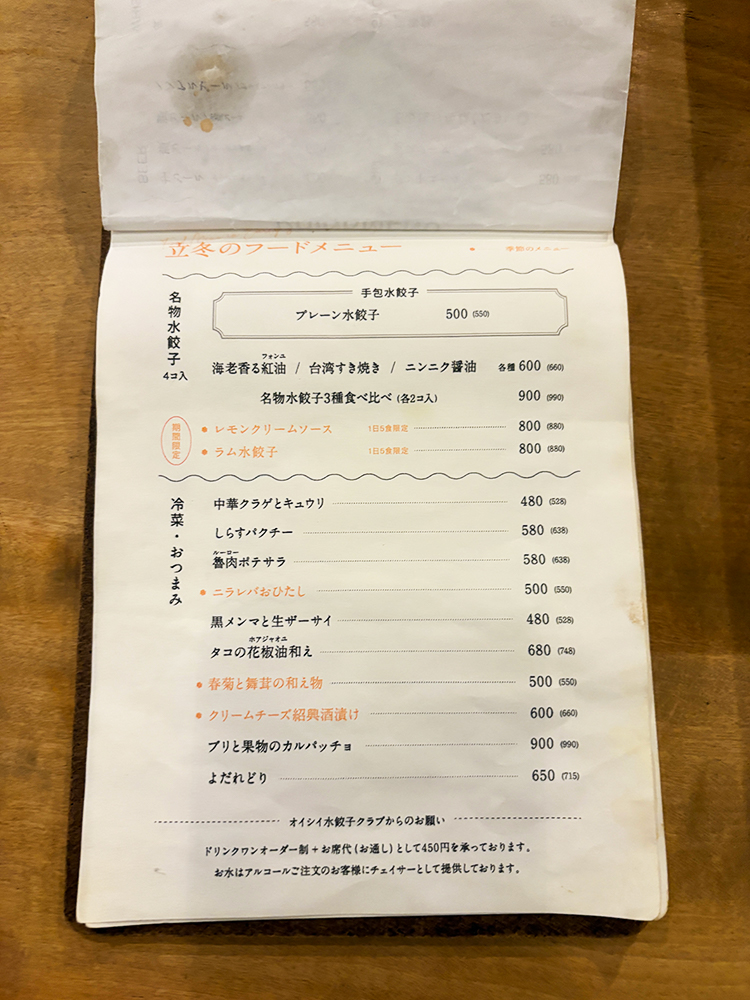 立冬のフードメニュー ● 季節のメニュー
名物水餃子 4コ入
手包水餃子
プレーン水餃子 500 (550)
フォンユ
海老香る紅油 / 台湾すき焼き / ニンニク醤油 各種 600 (660)
名物水餃子3種食べ比べ (各2コ入) 900 (990)
期間限定
● レモンクリームソース 1日5食限定 800 (880)
● ラム水餃子 1日5食限定 800 (880)
冷菜・おつまみ
中華クラゲとキュウリ 480 (528)
しらすパクチー 580 (638)
ルーロー
魯肉ポテサラ 580 (638)
● ニラレバおひたし 500 (550)
黒メンマと生ザーサイ 480 (528)
ホアジャオユ
タコの花椒油和え 680 (748)
● 春菊と舞茸の和え物 500 (550)
● クリームチーズ紹興酒漬け 600 (660)
ブリと果物のカルパッチョ 900 (990)
よだれどり 650 (715)
オイシイ水餃子クラブからのお願い
ドリンクワンオーダー制 + お席代 (お通し) として450円を承っております。
お水はアルコールご注文のお客様にチェイサーとして提供しております。